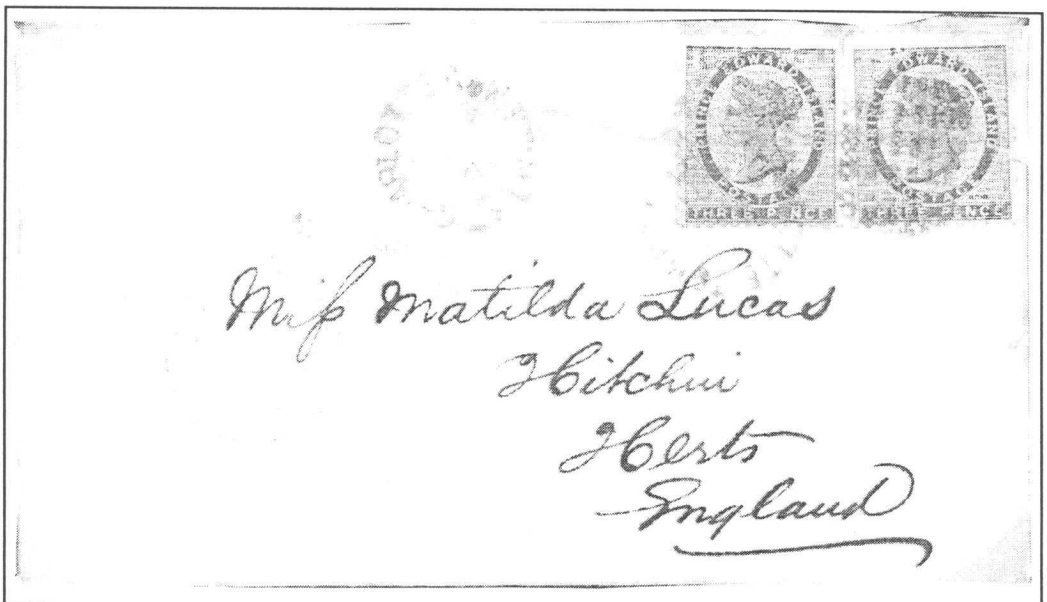 PRINCE EDWARD ISLAND
POSTAGE
THREE PENCE
PRINCE EDWARD ISLAND
POSTAGE
THREE PENCE
Miſs Matilda Lucas
Hitchin
Herts
England